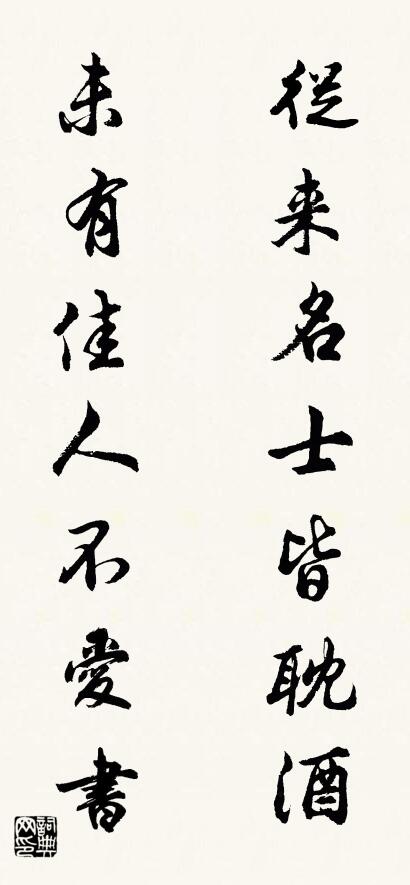 從来名士皆耽酒
未有佳人不愛書
詞典网印